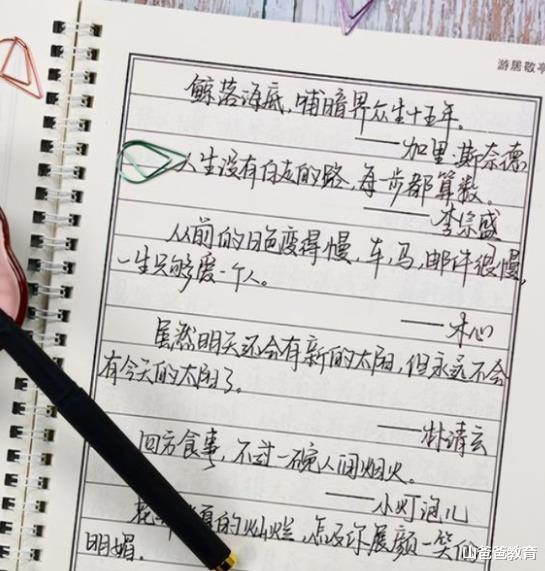 游居敬亭
鲸落海底,哺暗界众生十五年。
——加里·斯奈德
人生没有白走的路,每步都算数。
——李宗盛
从前的日色变得慢,车,马,邮件很慢,
一生只够爱一个人。
——木心
虽然明天还会有新的太阳,但永远不会
有今天的太阳了。
——林清玄
四方食事,不过一碗人间烟火。
——小灯泡儿
的灿烂,怎及你展颜一笑的
明媚.
山爸爸教育